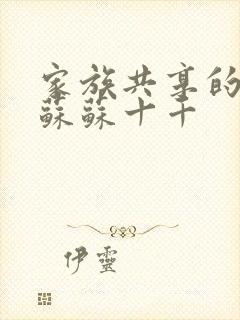 家族共享的
蘇蘇十十
伊靈